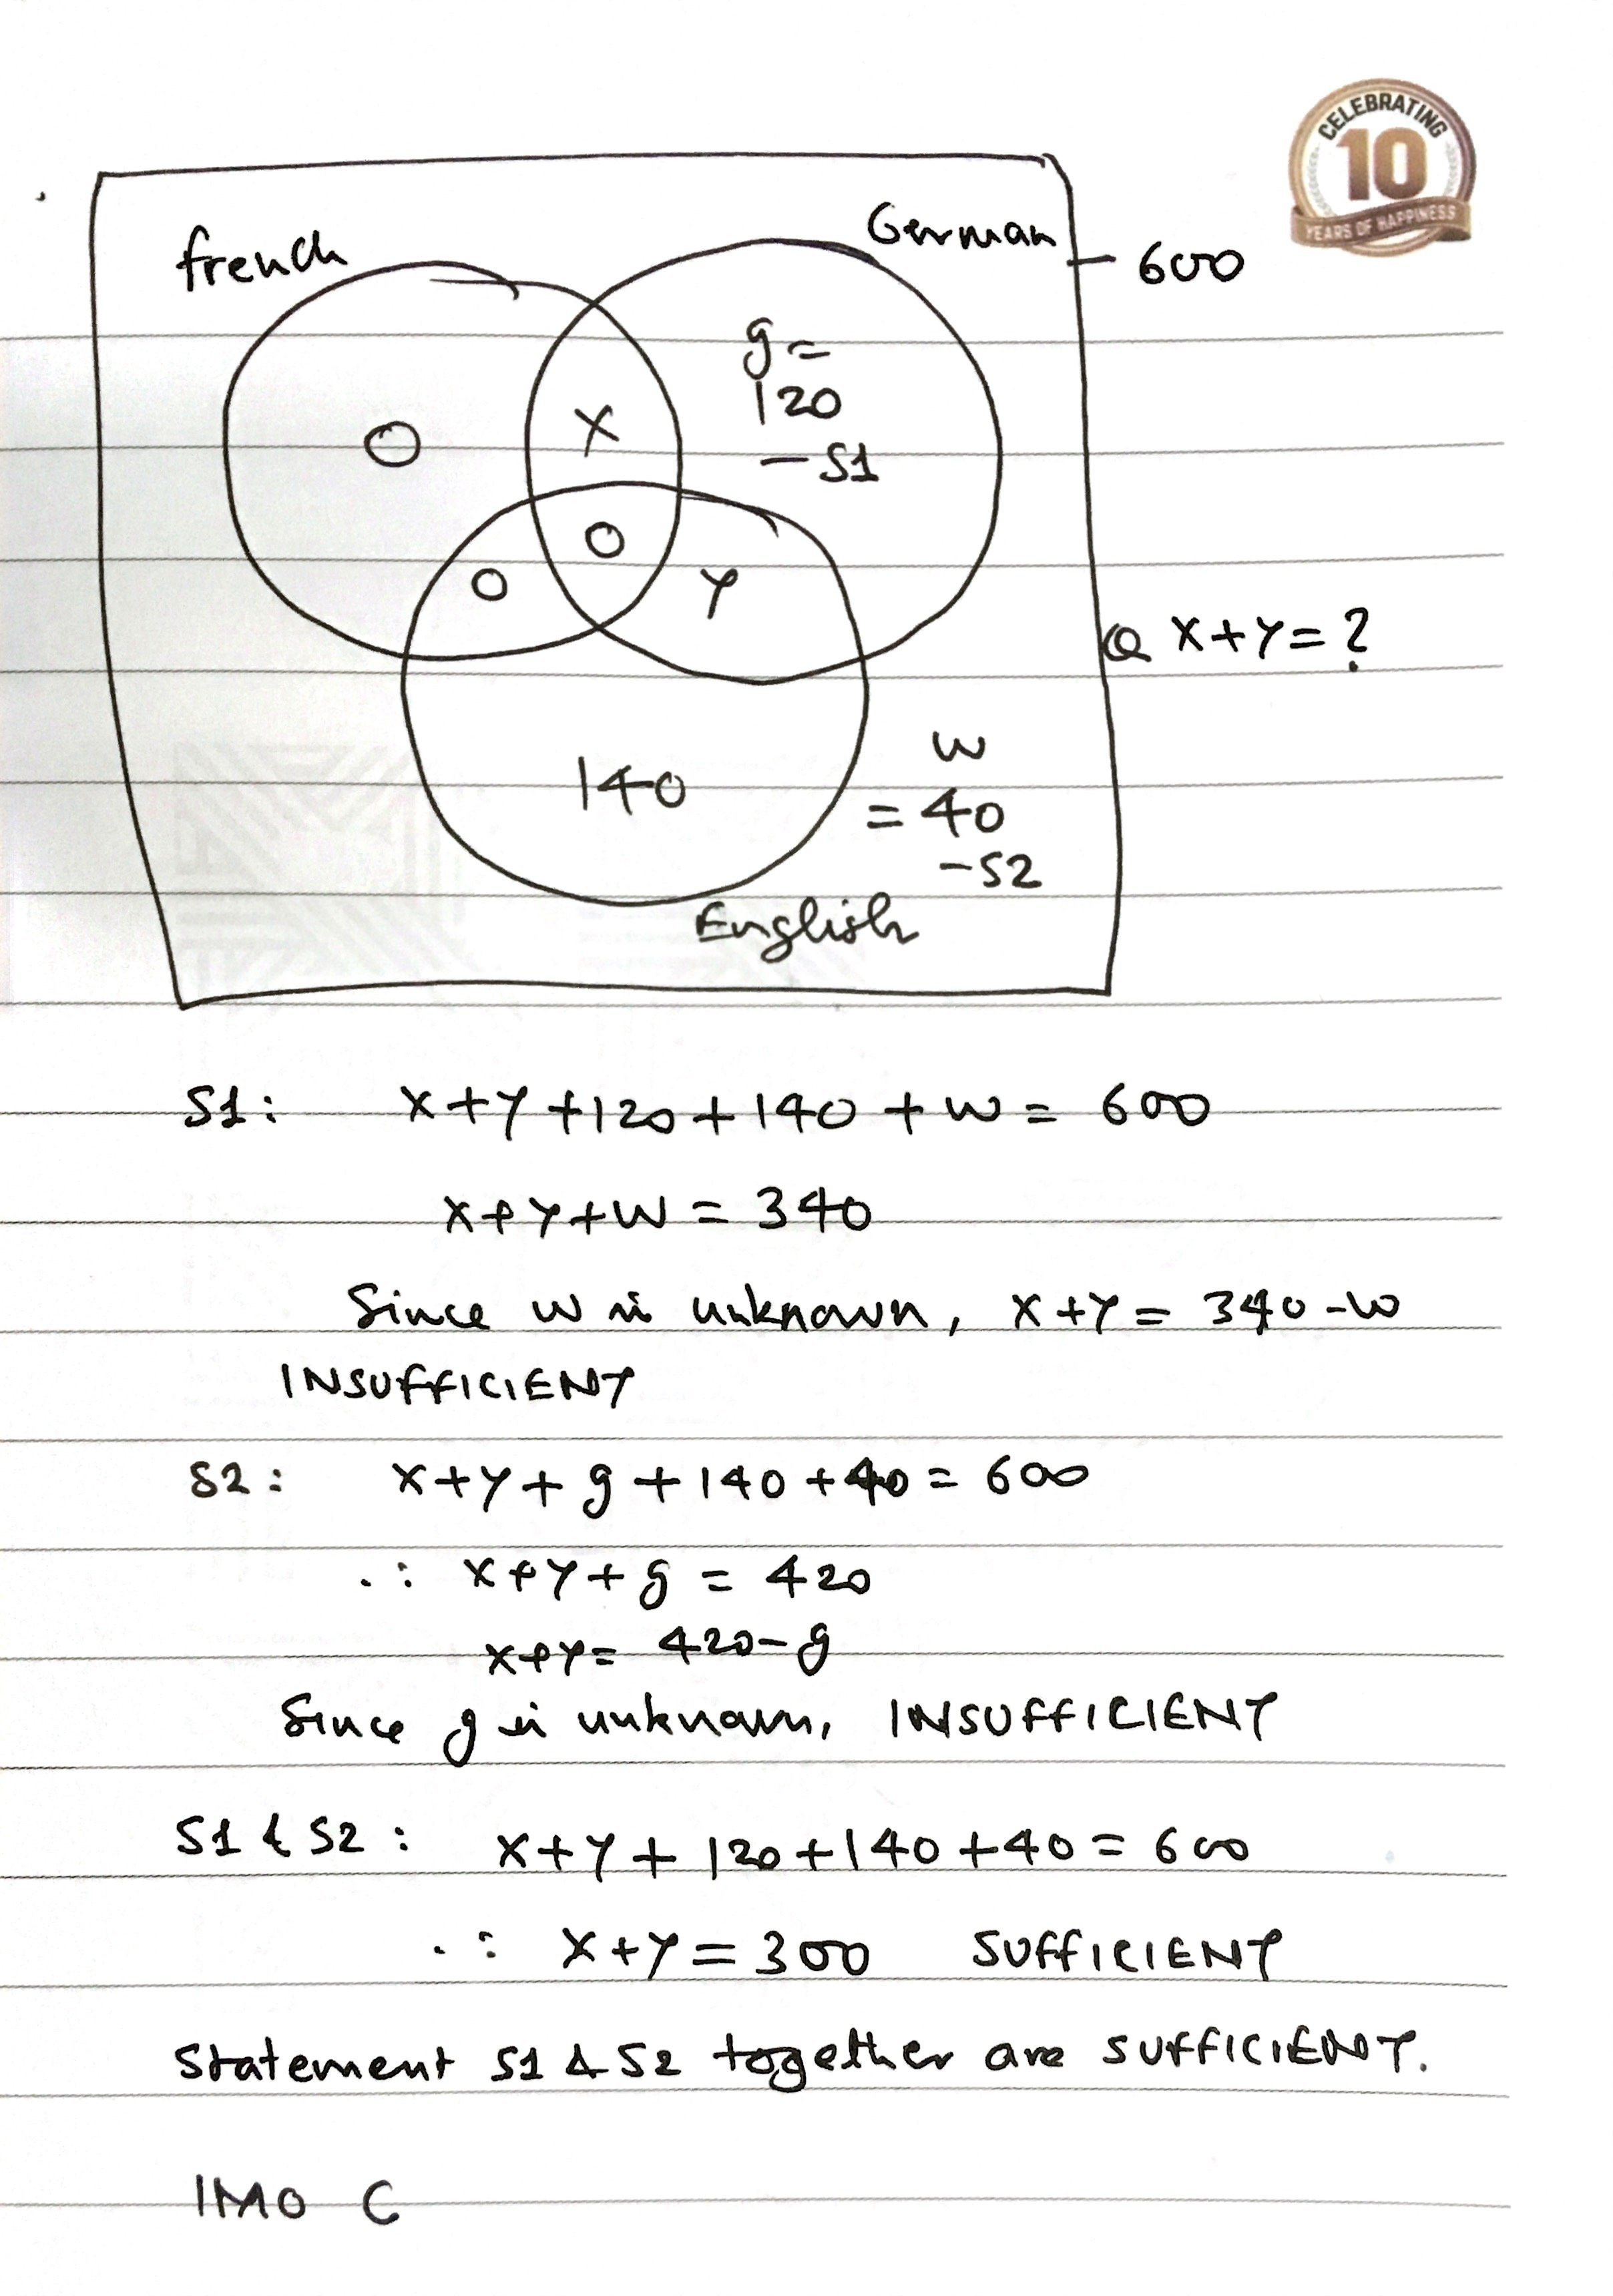 CELEBRATING
10
YEARS OF HAPPINESS
french
German
600
g =
120
- S1
X
O
O
O
Y
Q X+Y=?
w
= 40
- S2
140
English
S1: X+Y+120+140+w = 600
X+Y+W = 340
Since w is unknown, X+Y = 340-w
INSUFFICIENT
S2: X+Y+g+140+40 = 600
∴ X+Y+g = 420
X+Y = 420-g
Since g is unknown, INSUFFICIENT
S1 & S2: X+Y+120+140+40 = 600
∴ X+Y = 300 SUFFICIENT
Statement S1 & S2 together are SUFFICIENT.
IMO C